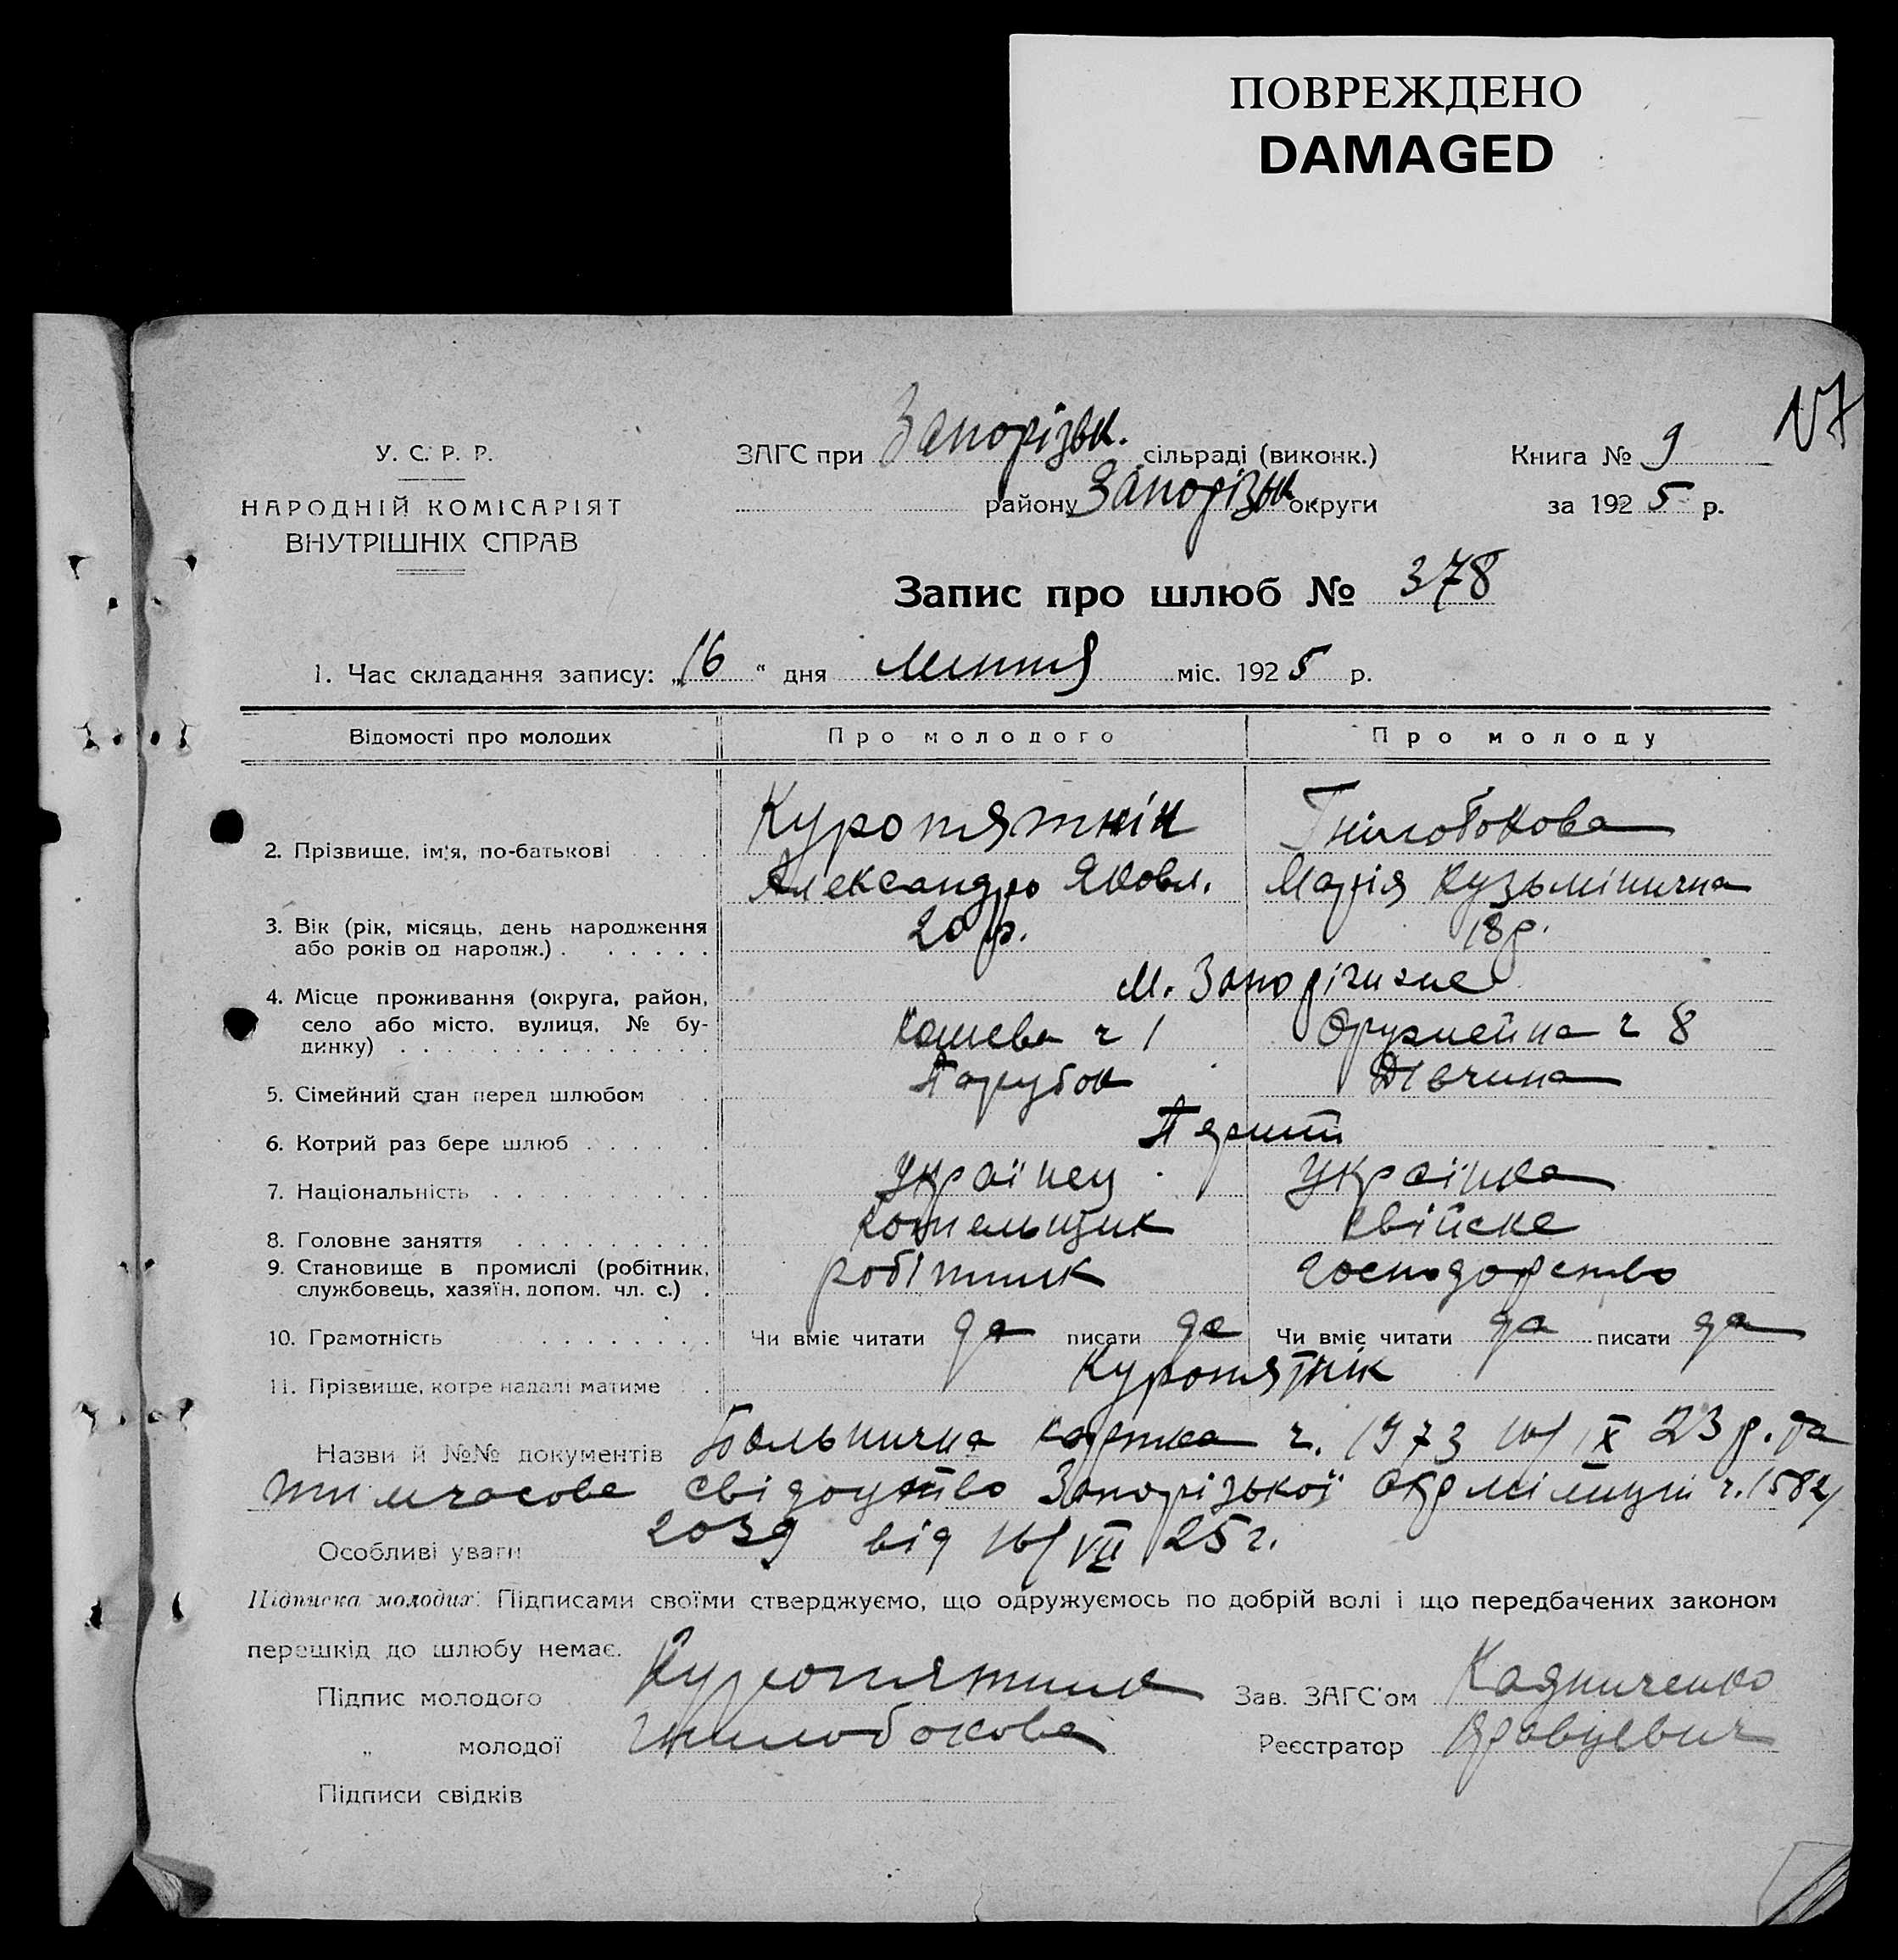 ПОВРЕЖДЕНО
DAMAGED
У. С. Р. Р.
НАРОДНІЙ КОМІСАРІЯТ
ВНУТРІШНІХ СПРАВ
ЗАГС при Запорізьк. сільраді (виконк.)
району Запорізьк округи
Книга № 9
за 1925 р.
Запис про шлюб № 378
1. Час складання запису: „16“ дня липня міс. 1925 р.
Відомості про молодих Про молодого Про молоду
2. Прізвище, ім'я, по-батькові Куропятнік Гнілобокова
Александр Яковл. Марія Кузьмінична
3. Вік (рік, місяць, день народження або років од народж.) 20 р. 18 р.
4. Місце проживання (округа, район, село або місто, вулиця, № будинку) м. Запоріжже
Кошева ч 1 Оружейна ч 8
5. Сімейний стан перед шлюбом Парубок Дівчина
6. Котрий раз бере шлюб Перший
7. Національність Українец Українка
8. Головне заняття котельщик свійске
9. Становище в промислі (робітник, службовець, хазяїн, допом. чл. с.) робітник господарство
10. Грамотність Чи вміє читати да писати да Чи вміє читати да писати да
11. Прізвище, котре надалі матиме Куропятнік
Назви й №№ документів Больнична картка ч. 1973 IX 23 р. та
тимчасове свідоцтво Запорізької Окрміліції ч. 1582/
Особливі уваги 2039 від 16/VII 25 г.
Підписка молодих: Підписами своїми стверджуємо, що одружуємось по добрій волі і що передбачених законом
перешкід до шлюбу немає.
Підпис молодого Куропятник Зав. ЗАГС'ом
„ молодої Гнилобокова Реєстратор
Підписи свідків